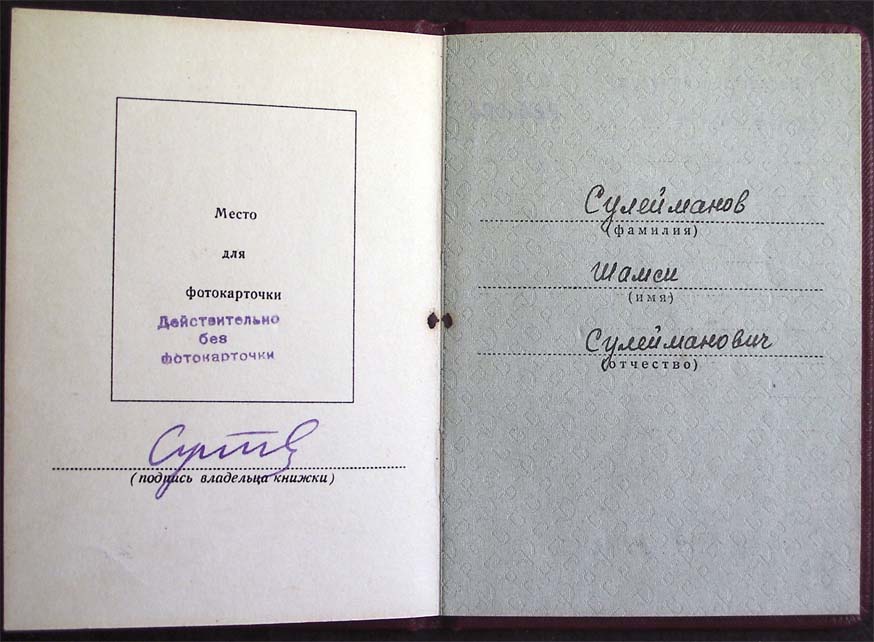 Место
для
фотокарточки
Действительно
без
фотокарточки
(подпись владельца книжки)
Сулейманов
(фамилия)
Шамси
(имя)
Сулейманович
(отчество)